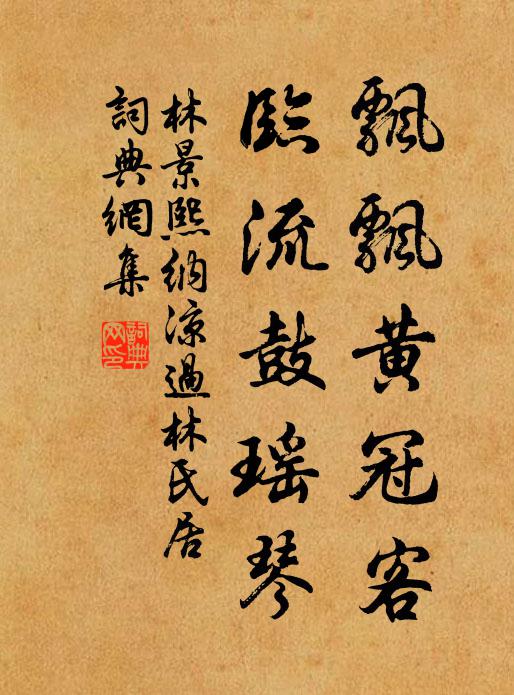 飄飄黄冠客
臨流鼓瑶琴
林景熙納凉過林氏居
詞典網集
詞典网印